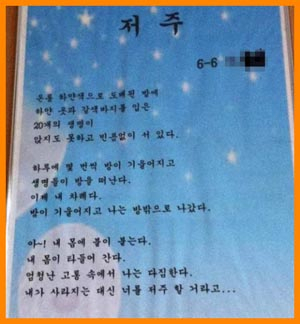 저 주
6-6
온통 하얀색으로 도배된 방에
하얀 옷과 갈색바지를 입은
20개의 생명이
앉지도 못하고 빈틈없이 서 있다.
하루에 몇 번씩 방이 기울어지고
생명들이 방을 떠난다.
이제 내 차례다.
방이 기울어지고 나는 방밖으로 나갔다.
아~! 내 몸에 불이 붙는다.
내 몸이 타들어 간다.
엄청난 고통 속에서 나는 다짐한다.
내가 사라지는 대신 너를 저주 할 거라고...